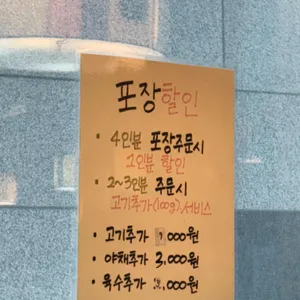 포장할인
• 4인분 포장주문시
1인분 할인
• 2~3인분 주문시
고기추가(100g)서비스
• 고기추가 ,000원
• 야채추가 3,000원
• 육수추가 ,000원